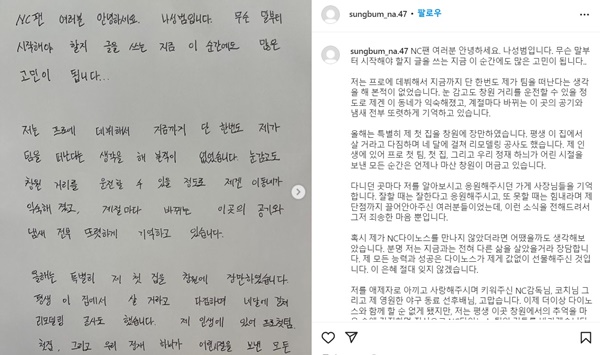 NC팬 여러분 안녕하세요. 나성범입니다. 무슨 말부터
시작해야 할지 글을 쓰는 지금 이 순간에도 많은
고민이 됩니다...
저는 프로에 데뷔해서 지금까지 단 한번도 제가
팀을 떠난다는 생각을 해 본적이 없었습니다. 눈감고도
창원 거리를 운전할 수 있을 정도로 제겐 이동네가
익숙해 졌고, 계절마다 바뀌는 이곳의 공기와
냄새 전부 또렷하게 기억하고 있습니다.
올해는 특별히 제 첫 집을 창원에 장만하였습니다.
평생 이 집에서 살 거라고 다짐하며 네달에 걸쳐
리모델링 공사도 했습니다. 제 인생에 있어 프로 첫팀,
첫집, 그리고 우리 정재 하늬가 어린시절을 보낸 모든
sungbum_na.47 • 팔로우
sungbum_na.47 NC팬 여러분 안녕하세요. 나성범입니다. 무슨 말부
터 시작해야 할지 글을 쓰는 지금 이 순간에도 많은 고민이 됩니다..
저는 프로에 데뷔해서 지금까지 단 한번도 제가 팀을 떠난다는 생각
을 해 본적이 없었습니다. 눈 감고도 창원 거리를 운전할 수 있을 정
도로 제겐 이 동네가 익숙해졌고, 계절마다 바뀌는 이 곳의 공기와
냄새 전부 또렷하게 기억하고 있습니다.
올해는 특별히 제 첫 집을 창원에 장만하였습니다. 평생 이 집에서
살 거라고 다짐하며 네 달에 걸쳐 리모델링 공사도 했습니다. 제 인
생에 있어 프로 첫 팀, 첫 집, 그리고 우리 정재 하늬가 어린 시절을
보낸 모든 순간은 언제나 마산 창원이 머금고 있습니다.
다니던 곳마다 저를 알아보시고 응원해주시던 가게 사장님들을 기억
합니다. 잘할 때는 잘한다고 응원해주시고, 또 못할 때는 힘내라며 제
단점까지 끌어안아주신 여러분들이었는데, 이런 소식을 전해드려서
그저 죄송한 마음 뿐입니다.
혹시 제가 NC다이노스를 만나지 않았더라면 어땠을까도 생각해보
았습니다. 분명 저는 지금과는 전혀 다른 삶을 살았을거라 장담합니
다. 제 모든 능력과 성공은 다이노스가 제게 값없이 선물해주신 것입
니다. 이 은혜 절대 잊지 않겠습니다.
저를 애제자로 아끼고 사랑해주시며 키워주신 NC감독님, 코치님 그
리고 제 영원한 야구 동료 선후배님, 고맙습니다. 이제 더이상 다이노
스와 함께 할 순 없게 됐지만, 저는 평생 이곳 창원에서의 추억을 마